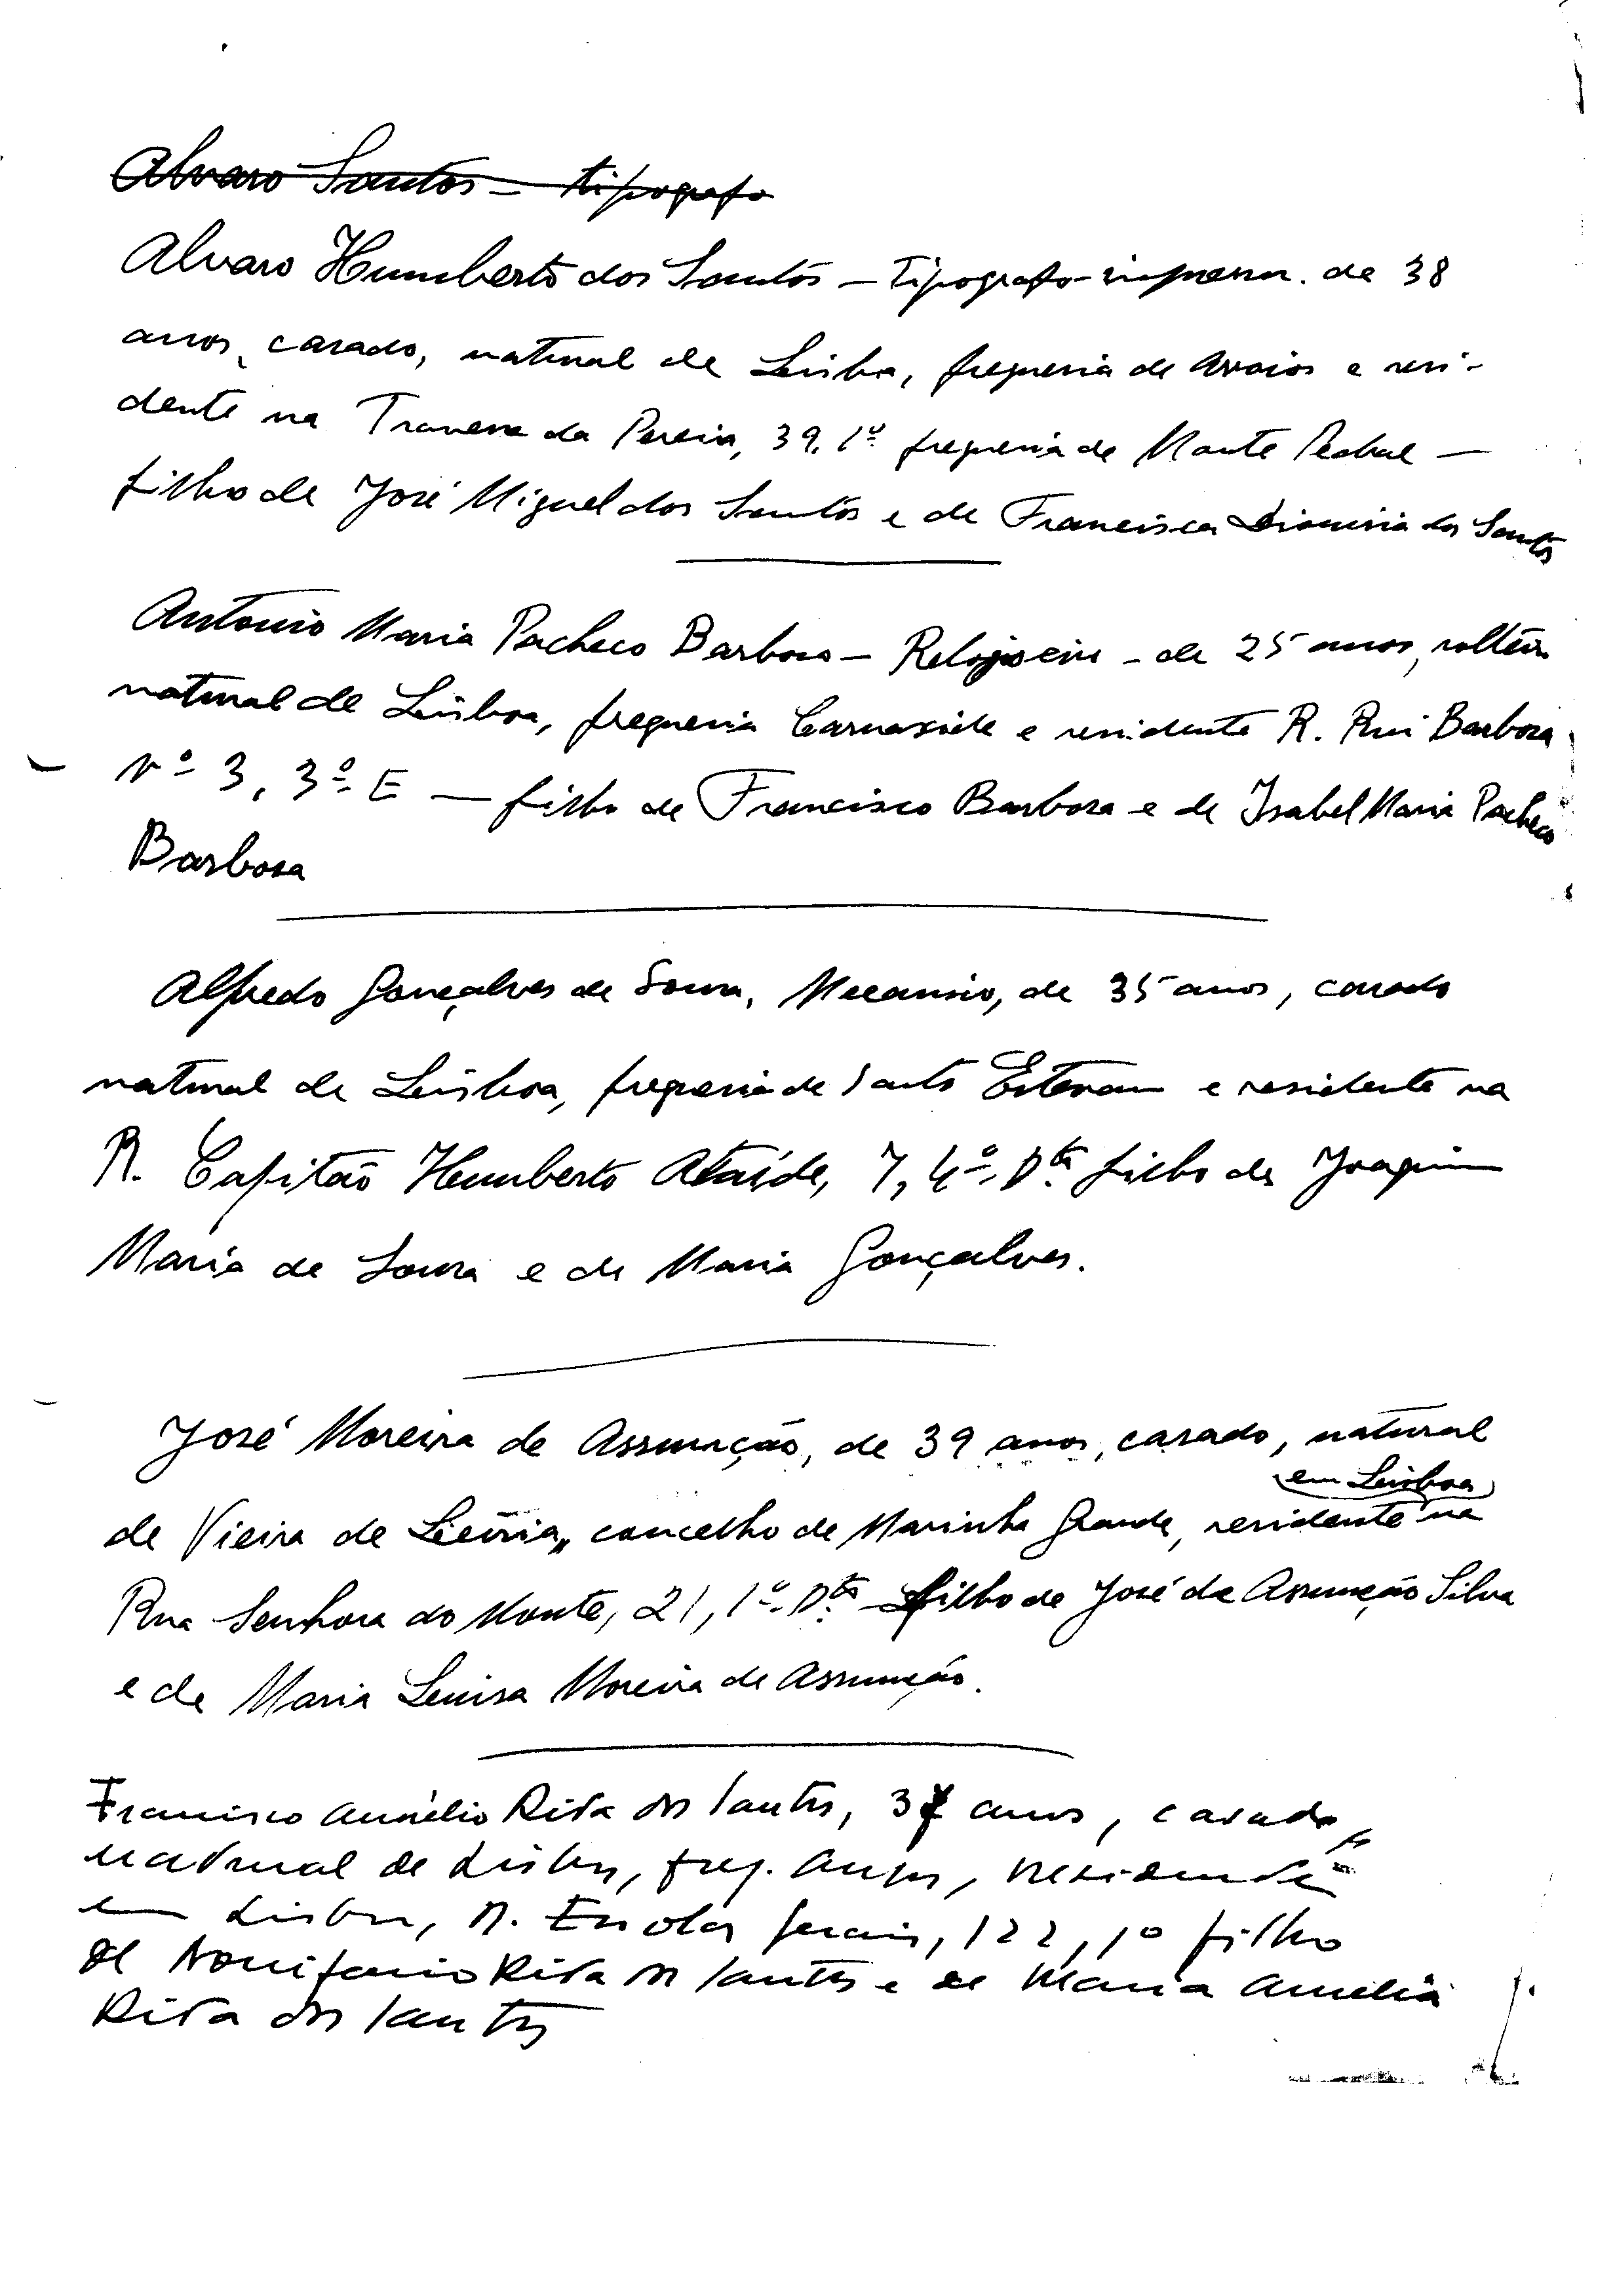 Alvaro Santos - tipografo
Alvaro Humberto dos Santos - Tipografo-impressor. de 38
anos, casado, natural de Lisboa, freguesia de Arroios e resi-
dente na Travessa da Pereira, 39, 1º freguesia de Monte Pedral -
filho de José Miguel dos Santos e de Francisca Dionisia dos Santos
Antonio Maria Pacheco Barbosa - Relojoeiro - de 25 anos, solteiro
natural de Lisboa, freguesia Carnaxide e residente R. Rui Barbosa
Nº 3, 3º E - filho de Francisco Barbosa e de Isabel Maria Pacheco
Barbosa
Alfredo Gonçalves de Sousa, Mecanico, de 35 anos, casado
natural de Lisboa, freguesia de Santo Estevam e residente na
R. Capitão Humberto Ataíde, 7, 4º Dtº filho de Joaquim
Maria de Sousa e de Maria Gonçalves.
José Moreira de Assunção, de 39 anos, casado, natural
em Lisboa
de Vieira de Leiria, concelho de Marinha Grande, residente na
Rua Senhora do Monte, 21, 1º Dtº filho de José da Assunção Silva
e de Maria Luisa Moreira de Assunção.
Francisco Aurélio Rita dos Santos, 37 anos, casado,
natural de Lisboa, freg. Anjos, residente
em Lisboa, R. Escolas Gerais, 122, 1º filho
de Bonifacio Rita dos Santos e de Maria Amélia
Rita dos Santos